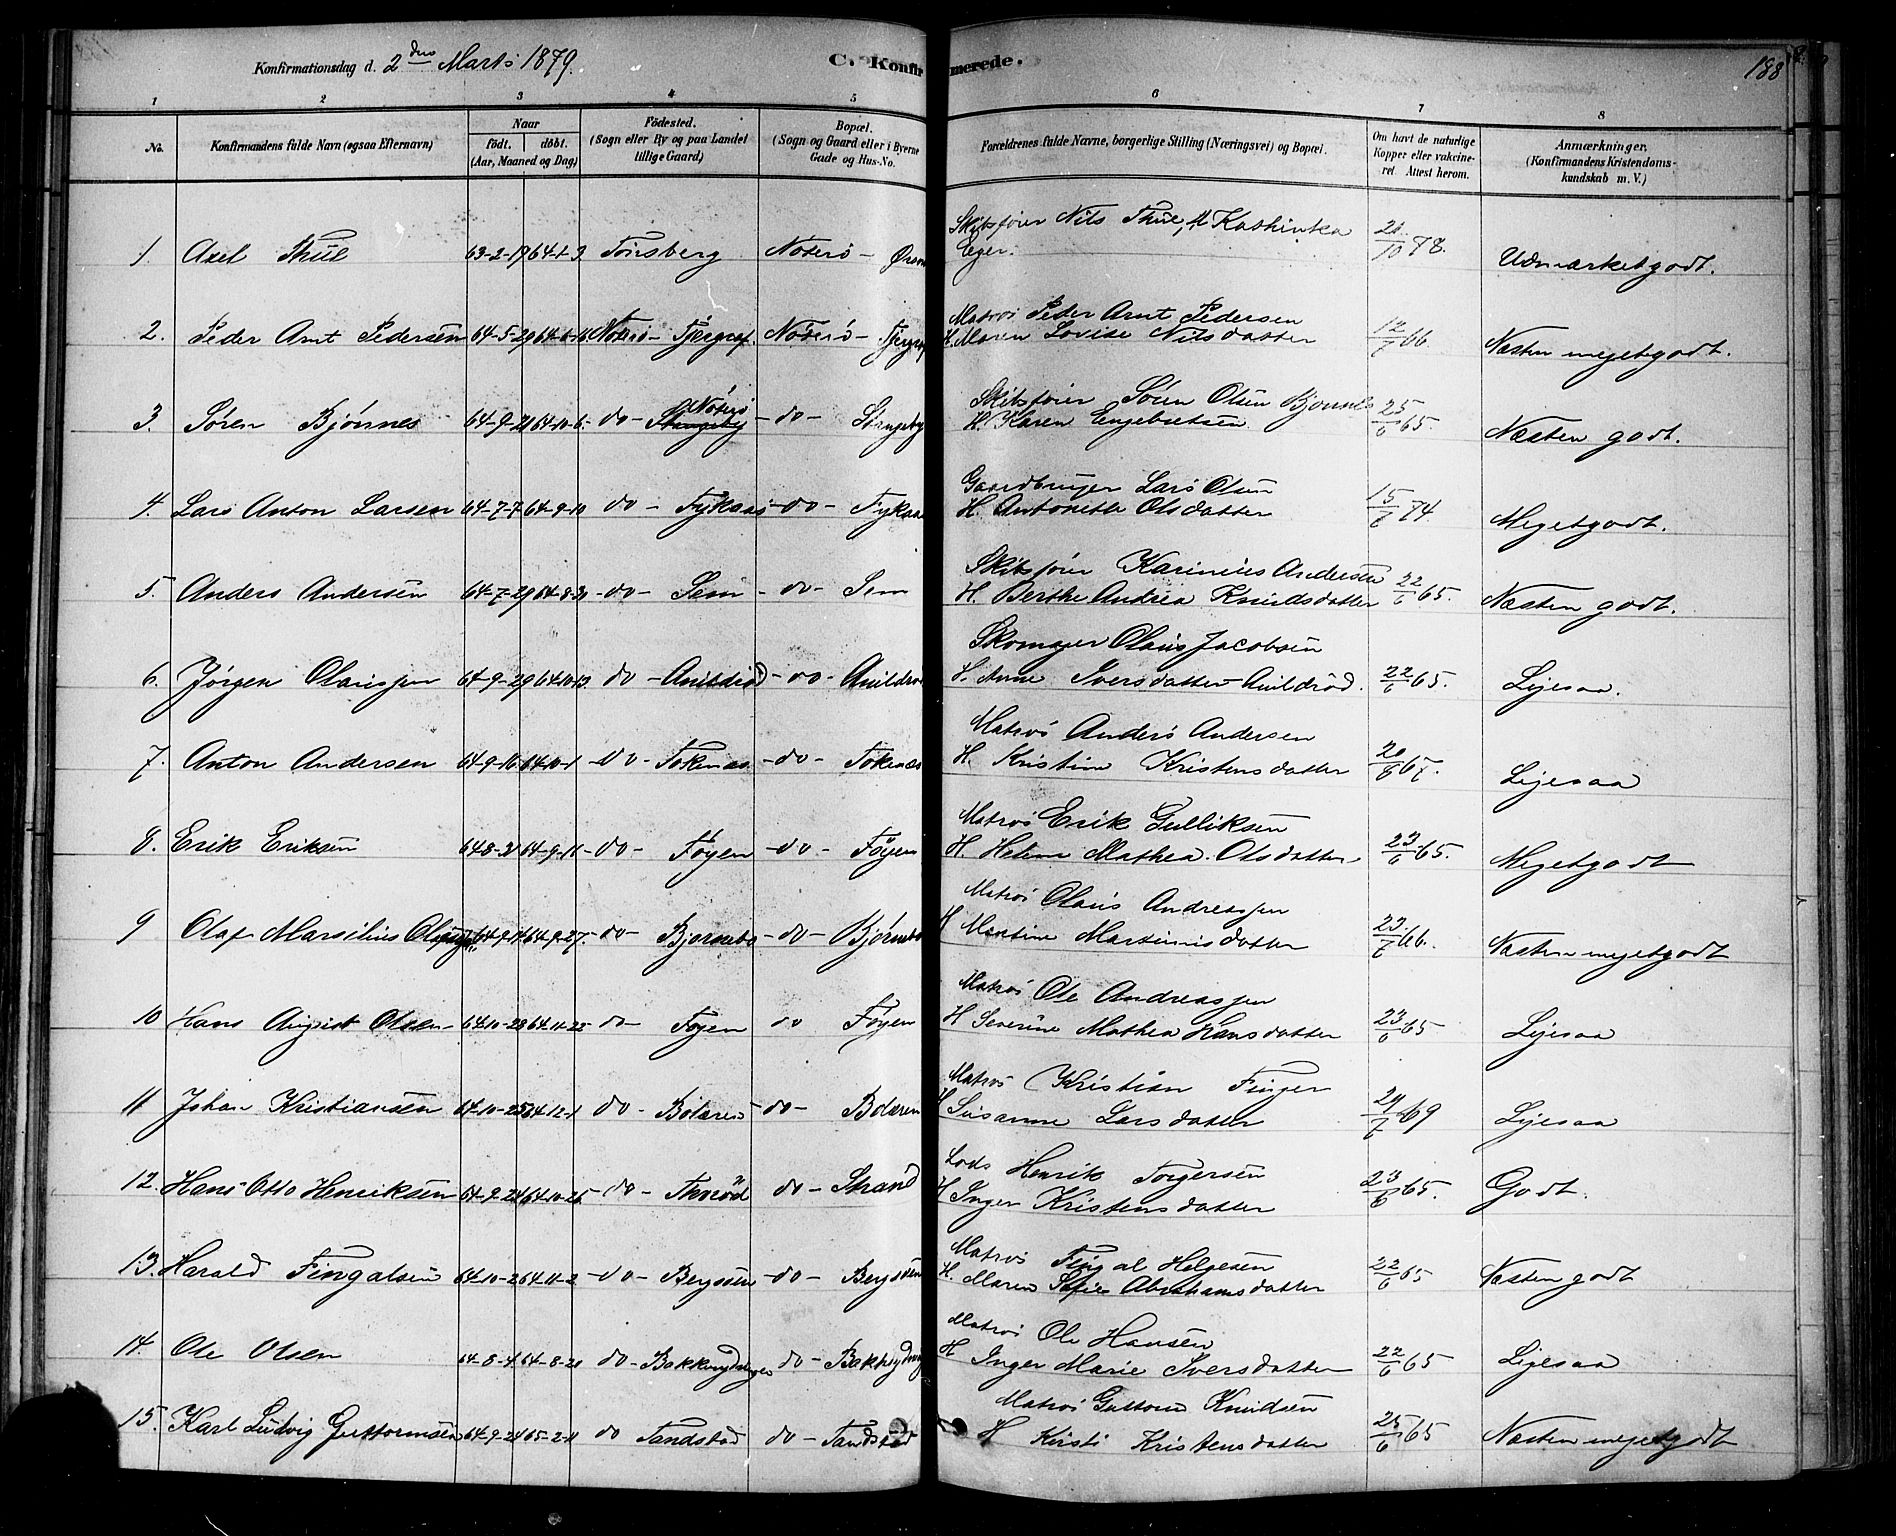 Konfirmationsdag d. 2den Marts 1879.
C. Konfirmerede.
188
1 2 3 4 5 6 7 8
No.
Konfirmandens fulde Navn (ogsaa Efternavn)
Naar
født. døbt.
(Aar, Maaned og Dag)
Fødested.
(Sogn eller By og paa Landet
tillige Gaard)
Bopæl.
(Sogn og Gaard eller i Byerne
Gade og Hus-No.
Forældrenes fulde Navne, borgerlige Stilling (Næringsvei) og Bopæl.
Om havt de naturlige
Kopper eller vakcine-
ret. Attest herom.
Anmærkninger,
(Konfirmandens Kristendoms-
kundskab m. V.)
Skibsfører Nils Thue, H. Kathinka
1. Axel Thue 63-2-19 64-1-3 Tønsberg Nøterø - Eger. 21/10 78. Udmærketgodt.
Matros Peder Arnt Pedersen
2. Peder Arnt Pedersen 64-5-29 Nøterø - Nøterø - H. Maren Lovise Nilsdatter 12/7 66. Næsten megetgodt.
Skibsfører Søren Olsen Bjønnes
3. Søren Bjønnes 64-9-21 64-10-6 - do - Nøterø - do - Stangeby H. Karen Engebretsen 25/6 65. Næsten godt.
Gaardbruger Lars Olsen
4. Lars Anton Larsen 64-7-7 64-9-10 do - - do - H. Antonette Olsdatter 15/6 74. Megetgodt.
Skibsfører Karinius Andersen
5. Anders Andersen 64-7-29 64-8-21 - do - Sem - do - Sem H. Berthe Andrea Knudsdatter 22/6 65. Næsten godt.
Skomager Olaus Jacobsen
6. Jørgen Olaussen 64-9-29 64-10-23 do - - do - H. Anne Iversdatter - 22/6 65. Ligesaa.
Matros Anders Andersen
7. Anton Andersen 64-9-16 64-10-1 - do - Tokenæs - do - Tokenæs H. Kristine Kristensdatter 67. Ligesaa
Matros Erik Gulliksen
8. Erik Eriksen 64 8-31 64-9-11 - do - Føyen - do - Føyen H. Helene Mathea Olsdatter 23/6 65. Megetgodt
Matros Olaus Andreassen
9 Olaf Marsilius 64-9-27. - do - Bjørnebo - do - Bjørnebo H. Martine Martinusdatter 23/7 66. Næsten megetgodt
Matros Ole Andreassen
10 Hans August Olsen 64 10-28 64 11-25 - do - Føyen do Føyen H Severine Mathea Hansdatter 23/6 65 Ligesaa
Matros Kristian Finger
11 Johan Kristiansen 64-10-25 64-12-1 do - Bolæren do - Bolæren H Susanne Larsdatter 29/6 69 Ligesaa
Lods Henrik Torgersen
12. Hans Otto Henriksen 64-9-24 64-10-26 - do - Thorød do - Strand H Inger Kristensdatter 23/6 65. Godt.
Matros Fingal Helgesen
13. Harald Fingalsen 64-10-2 64-11-2 - do - Bergsøen - do - Bergsøen H. Maren Sofie Abrahamsdatter 22/6 65 Næsten godt
Matros Ole Hansen
14. Ole Olsen 64-8-4 64-8-21 do - do - H Inger Marie Iversdatter 22/6 65 Ligesaa
Matros Guttorm Knudsen
15. Karl Ludvig Guttormsen 64-9-21 65-2-11 do Sandstad do - Sandstad H Kirsti Kristensdatter 25/6 65 Næsten megetgodt